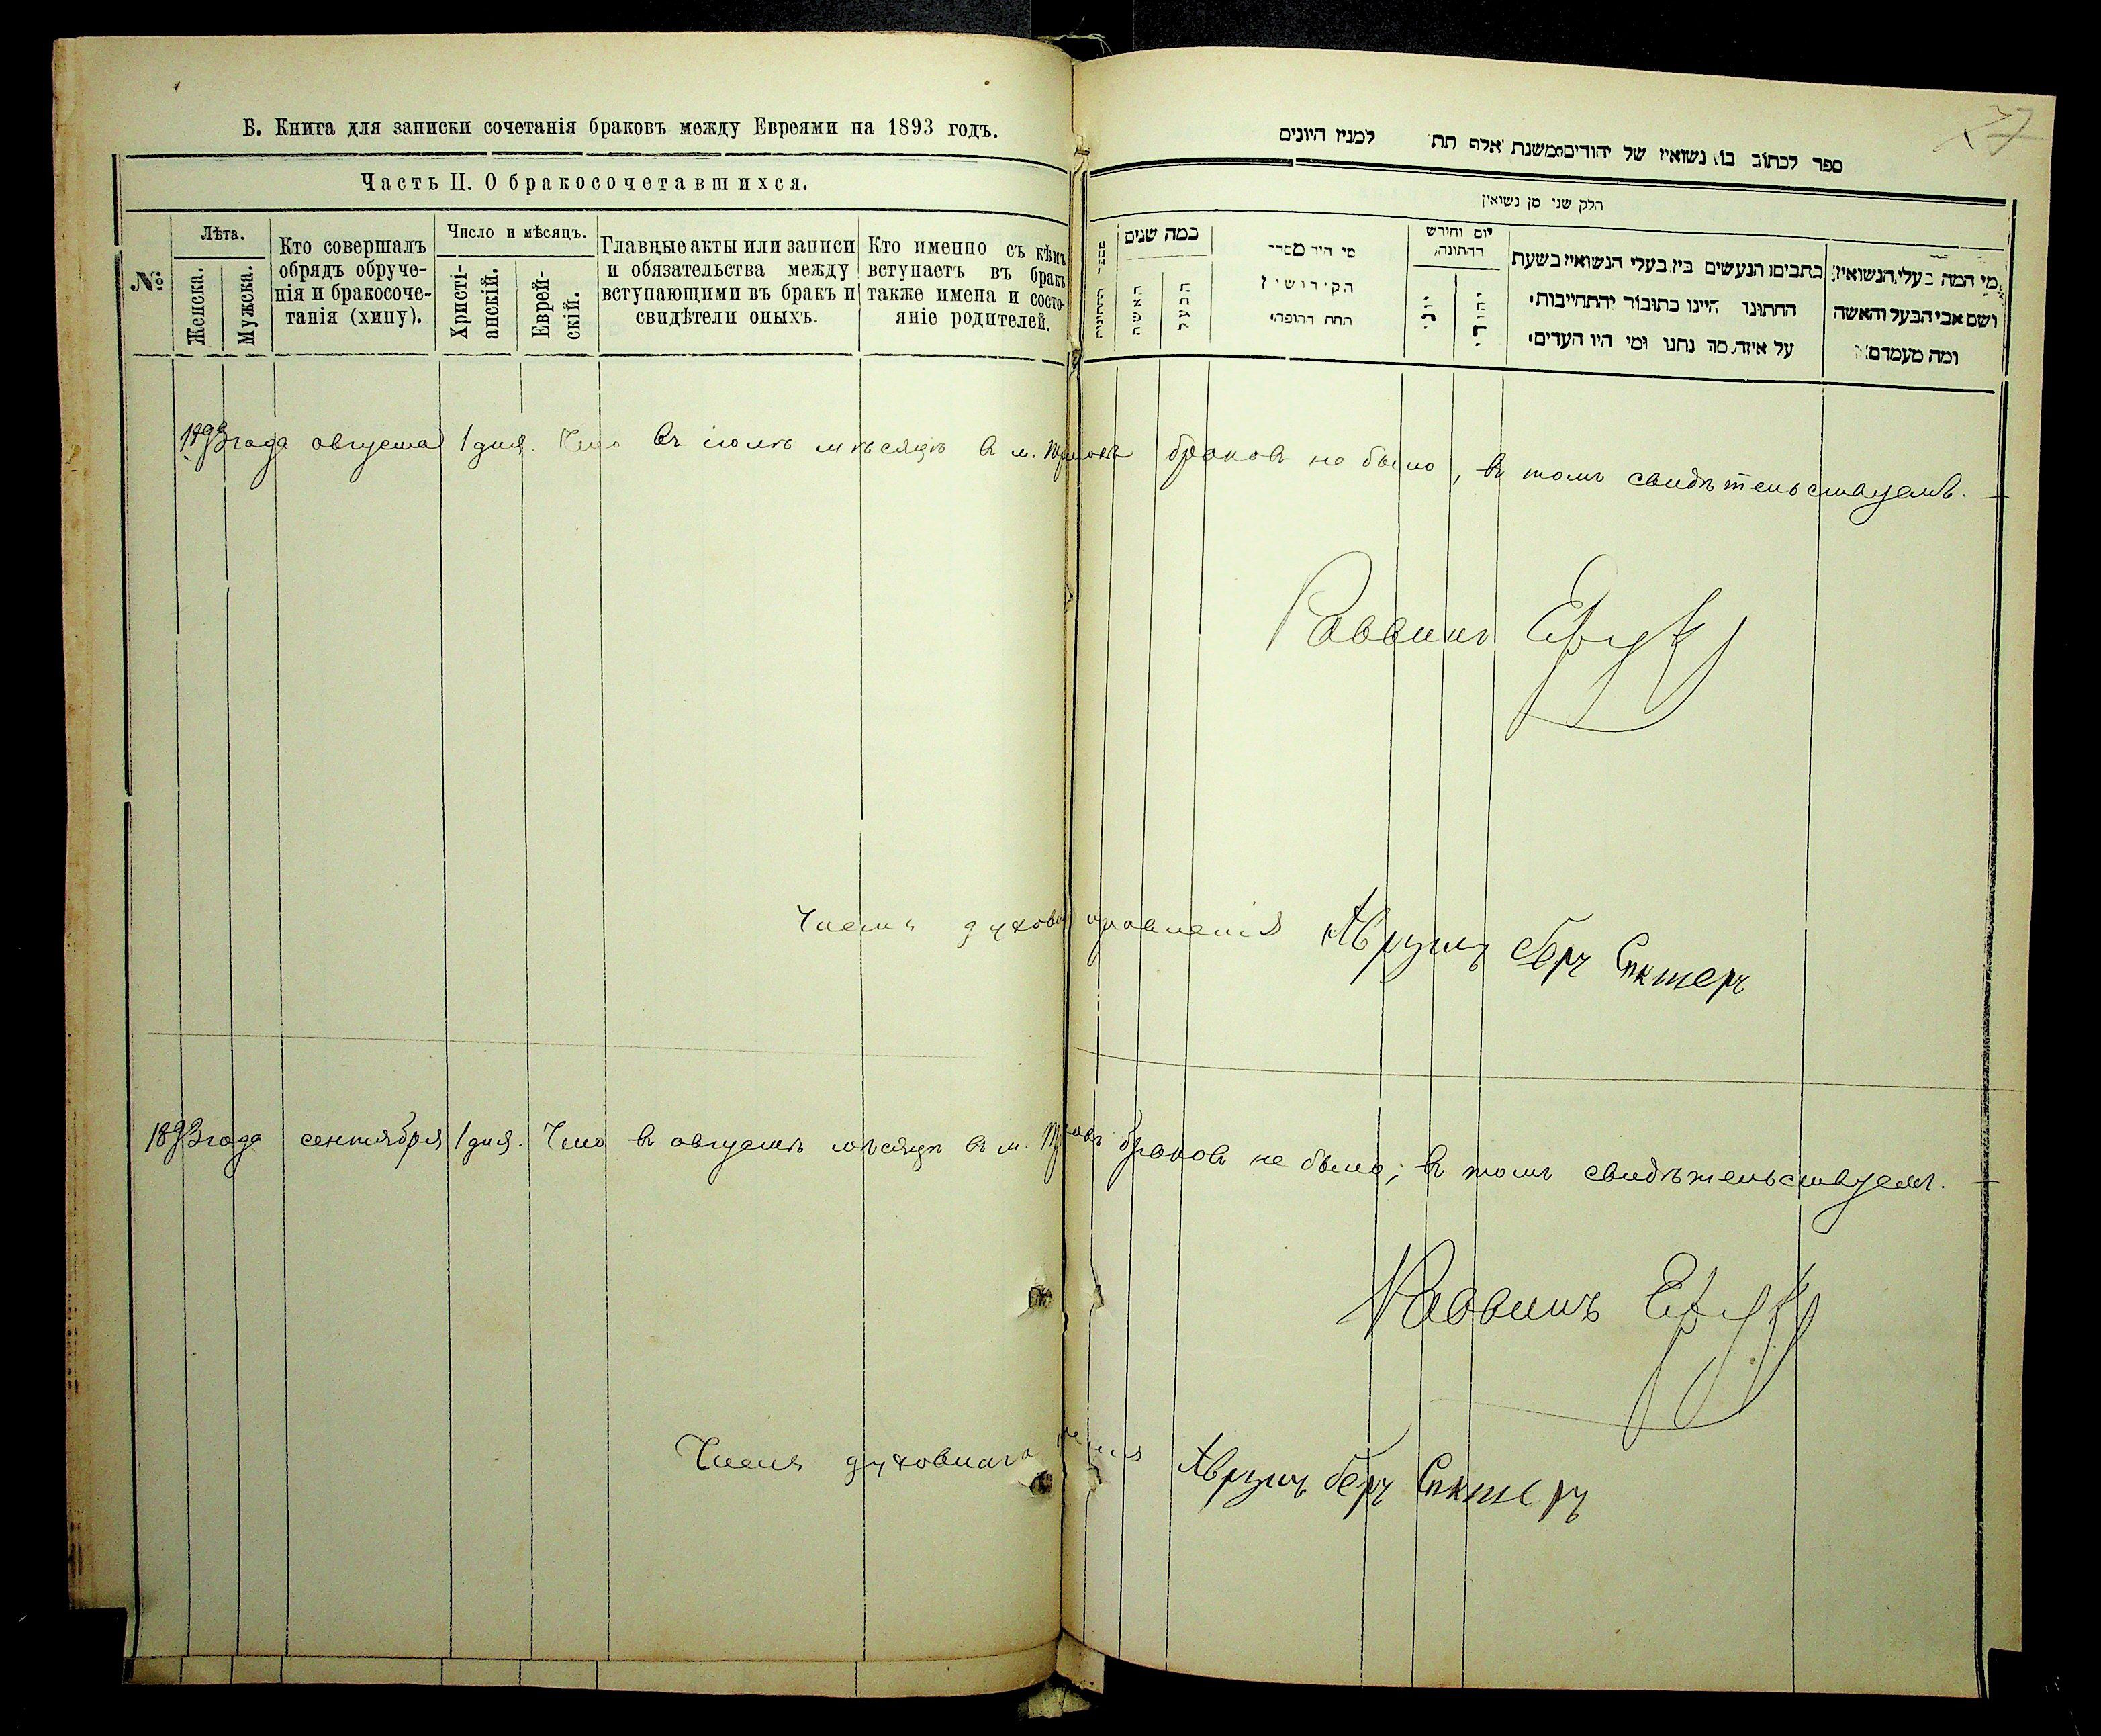 Б. Книга для записки сочетанія браковъ между Евреями на 1893 годъ.
Часть II. О бракосочетавшихся.
№
Лѣта.
Женска.
Мужска.
Кто совершалъ
обрядъ обруче-
нія и бракосоче-
танія (хипу).
Число и мѣсяцъ.
Христі-
анскій.
Еврей-
скій.
Главные акты или записи
и обязательства между
вступающими въ бракъ и
свидѣтели оныхъ.
Кто именно съ кѣмъ
вступаетъ въ бракъ
также имена и состо-
яніе родителей.
27
ספר לכתוב בו נשואין של יהודים משנת אלף תת למנין היונים
חלק שני מן נשואין
כמה שנים
האשה
הבעל
מי היה מסדר
הקידושין
תחת החופה
יום וחודש
החתונה
יוני
יהודי
כתבים הנעשים בין בעלי הנשואין בשעת
החתונו היינו כתובור והתחייבות
על איזה סך נתנו ומי היו העדים
מי המה בעלי הנשואין
ושם אבי הבעל והאשה
ומה מעמדם
1893 года августа 1 дня. Что въ іюлѣ мѣсяцѣ в м. браковъ не было, въ томъ свидѣтельствуемъ.
Раввинъ
Членъ духовн правленія Аврумъ беръ Спкторъ
1893 года сентября 1 дня. Что въ августѣ мѣсяцѣ въ м. браковъ не было, въ томъ свидѣтельствуемъ.
Раввинъ
Членъ духовнаго Аврумъ беръ Спкторъ